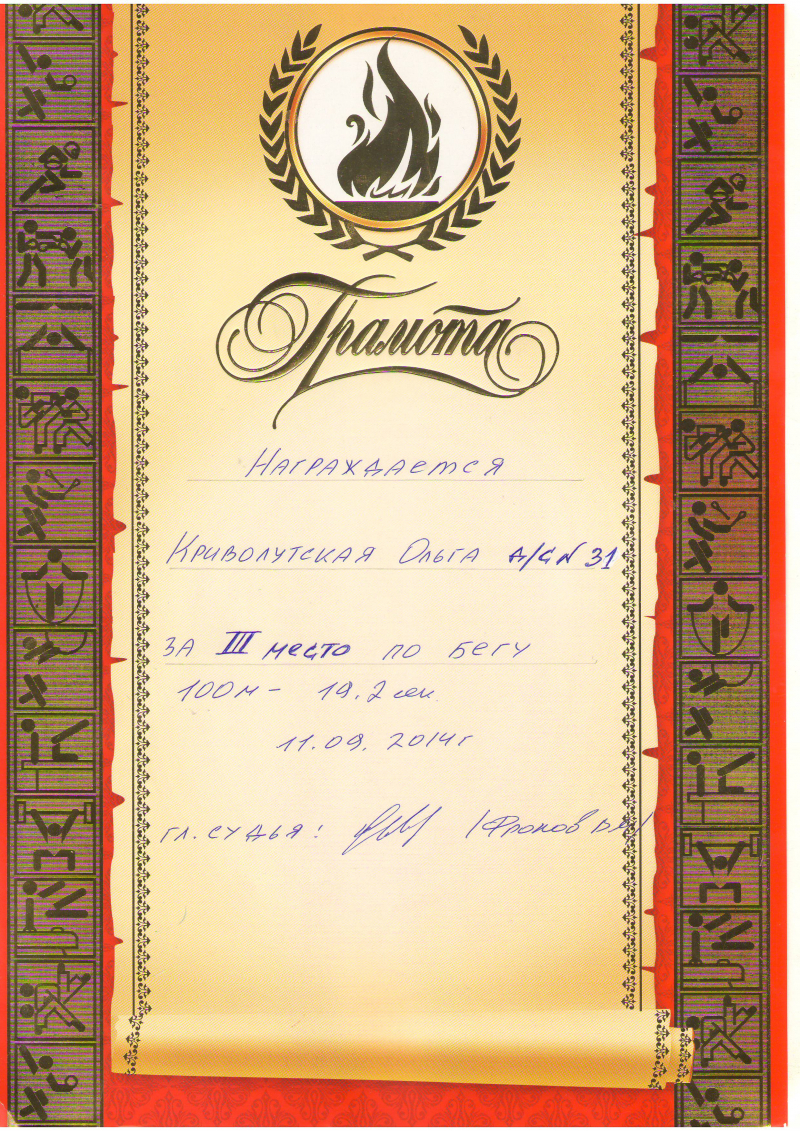 Грамота
Награждается
Криволутская Ольга д/с № 31
за III место по бегу
100м - 19,2 сек.
11.09.2014г
гл. судья: